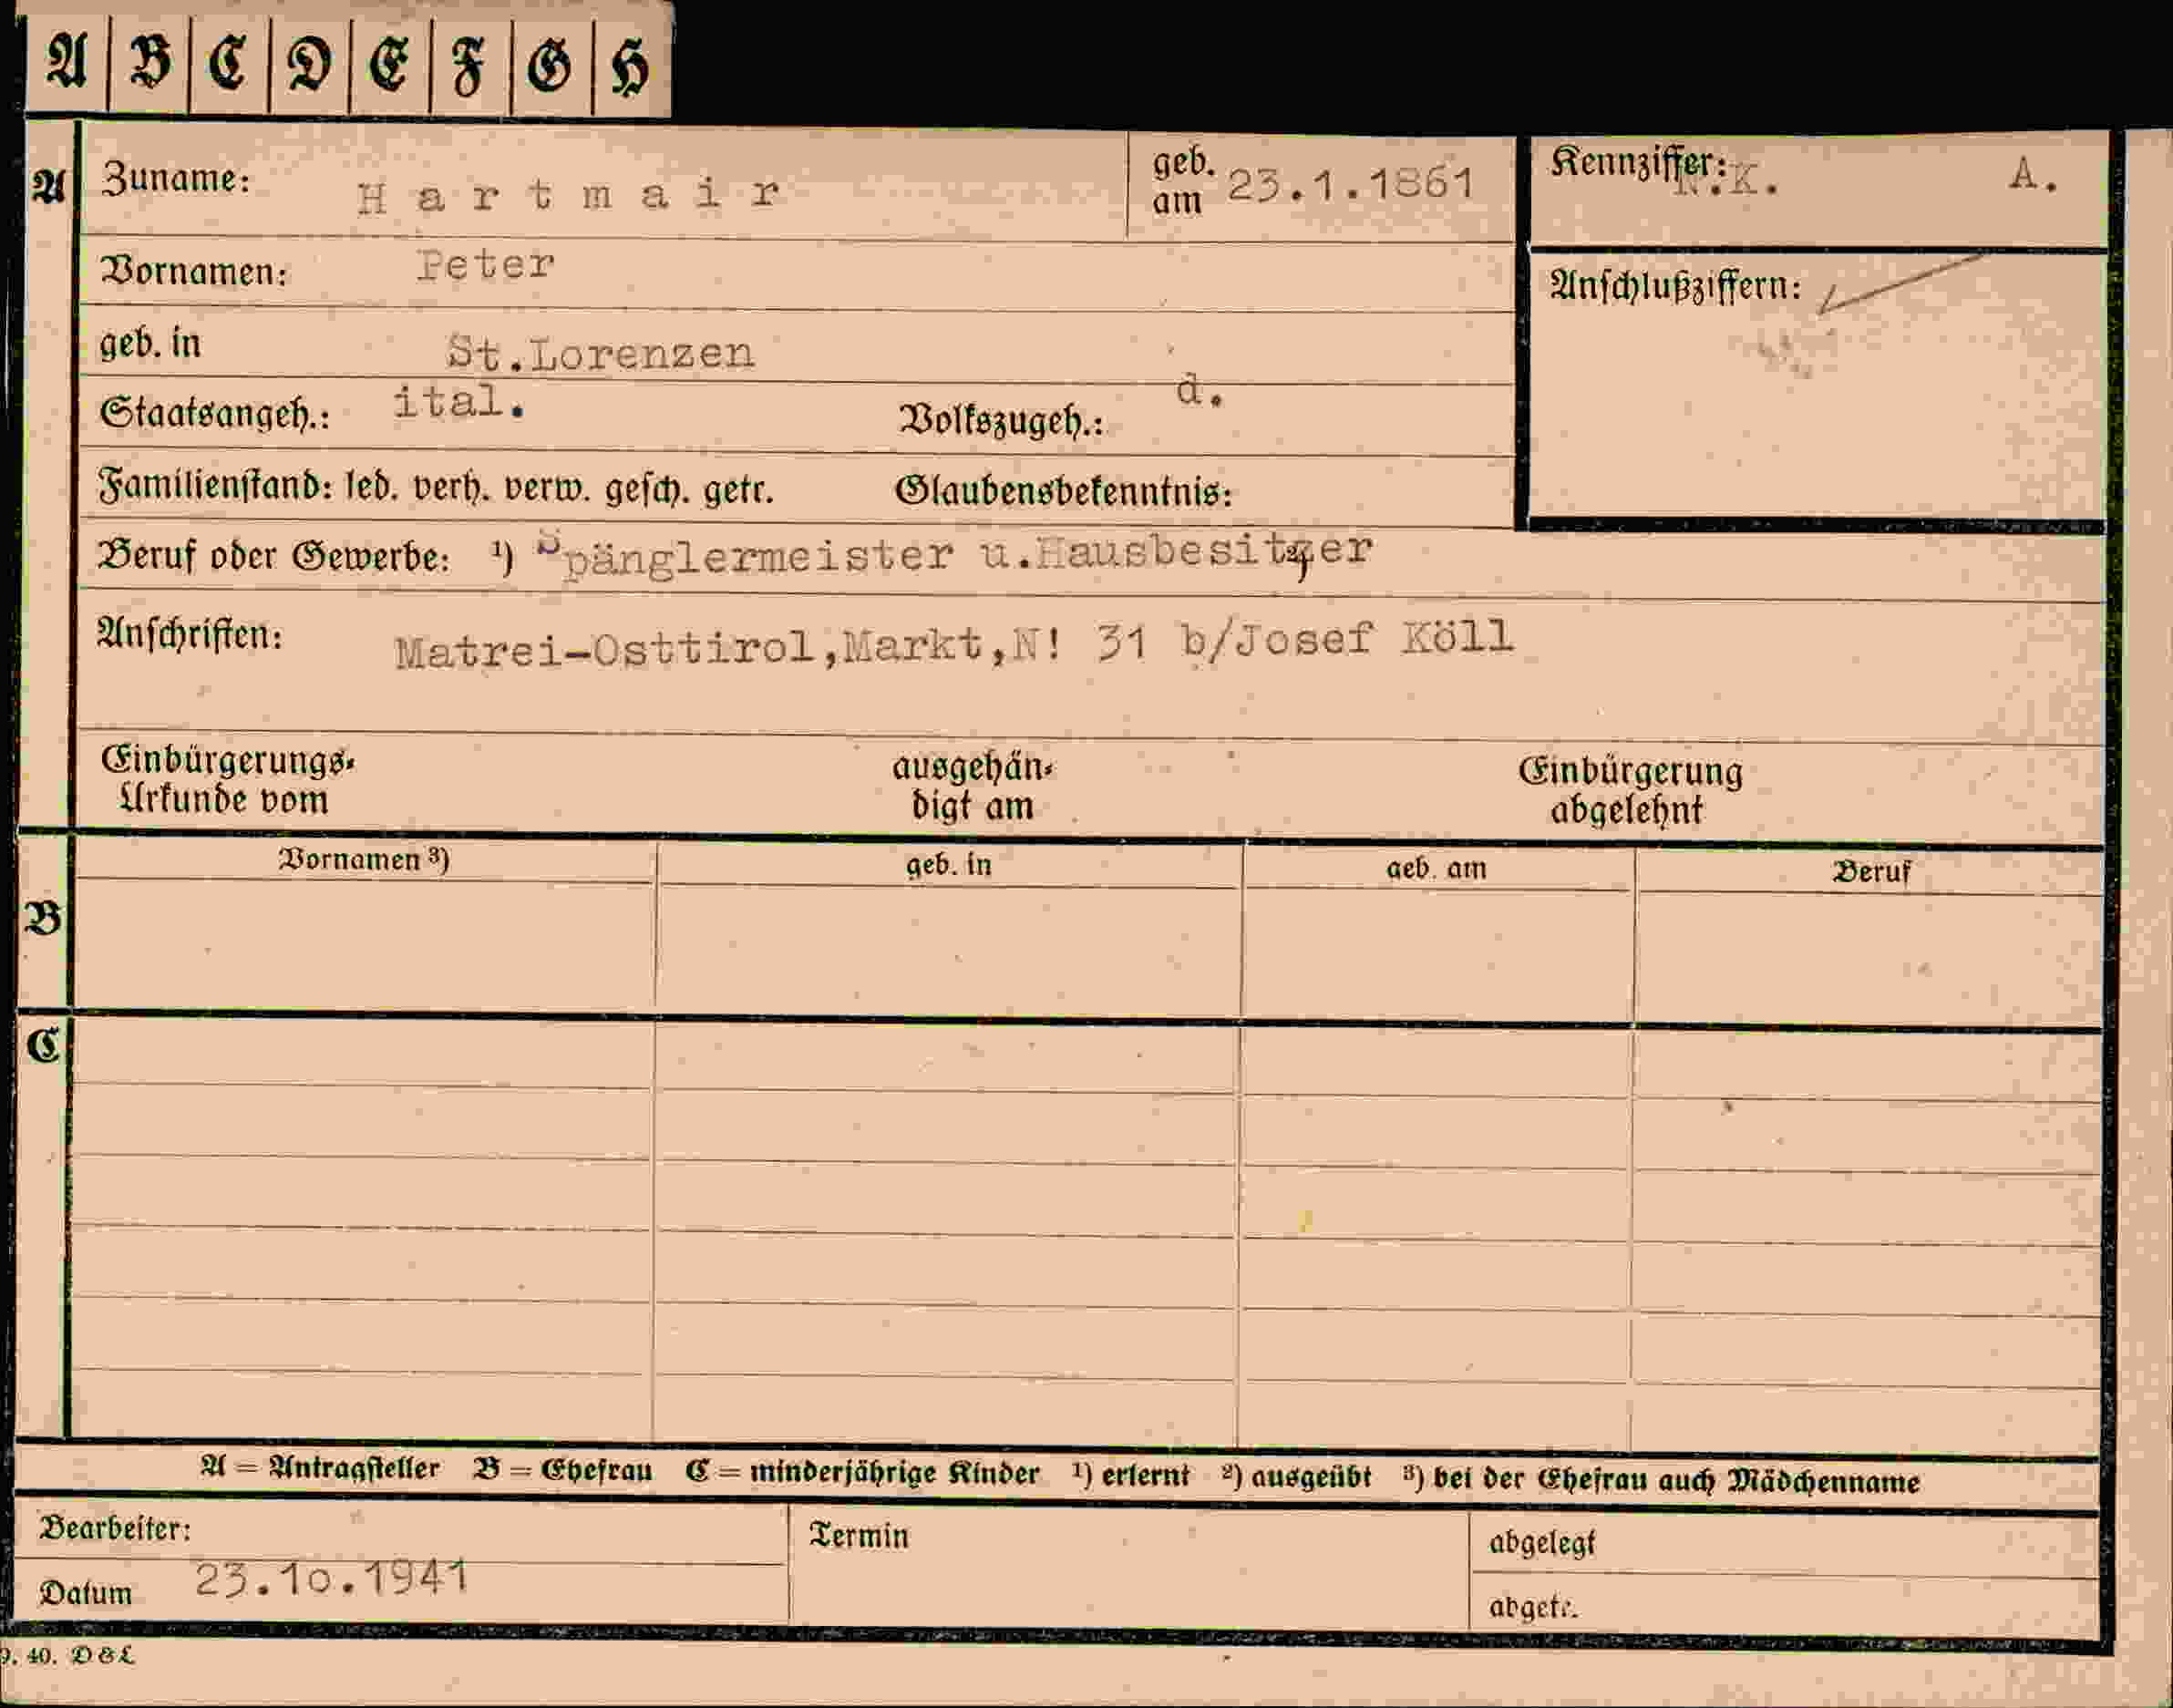 A B C D E F G H
A Zuname: Hartmair geb. am 23.1.1861 Kennziffer: N.K. A.
Vornamen: Peter
Anschlußziffern:
geb. in St.Lorenzen
Staatsangeh.: ital. Volkszugeh.: d.
Familienstand: led. verh. verw. gesch. getr. Glaubensbekenntnis:
Beruf oder Gewerbe: ¹) Spänglermeister u.Hausbesitzer
Anschriften: Matrei-Osttirol,Markt,N! 31 b/Josef Köll
Einbürgerungs- ausgehän- Einbürgerung
Urkunde vom digt am abgelehnt
Vornamen ³) geb. in geb. am Beruf
B
C
A = Antragsteller B = Ehefrau C = minderjährige Kinder ¹) erlernt ²) ausgeübt ³) bei der Ehefrau auch Mädchenname
Bearbeiter: Termin abgelegt
Datum 23.10.1941 abgetr.
40. D&L